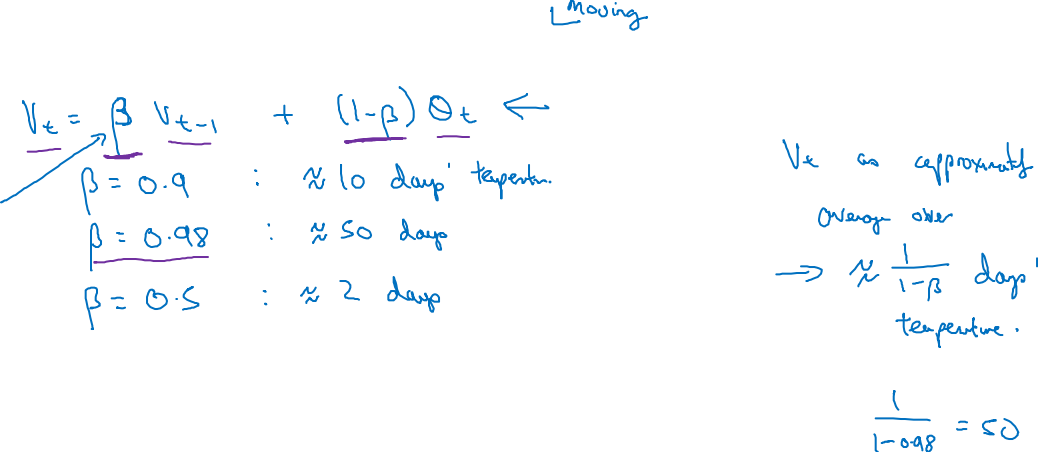 Moving
V_t = β V_{t-1} + (1-β) θ_t ←
β = 0.9 : ≈ 10 days' temperature.
β = 0.98 : ≈ 50 days
β = 0.5 : ≈ 2 days
V_t as approximately
average over
→ ≈ 1/(1-β) days'
temperature.
1/(1-0.98) = 50